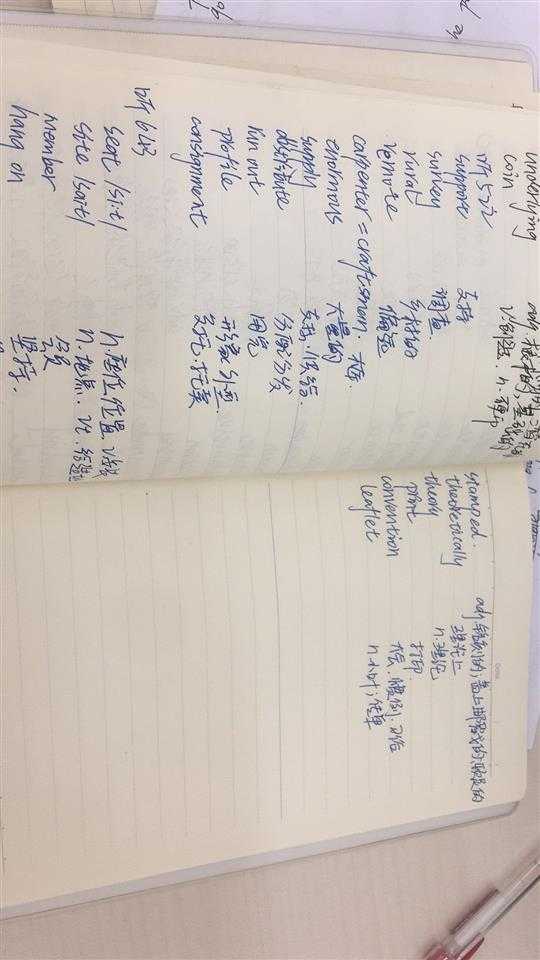 underlying adj. 根本的, 潜在的
coin v.创造, n.硬币
听5 2
support 支持
survey 调查
rural 乡村的
remote 偏远
carpenter = craftsman. 木匠
enormous 大量的
supply 支持, 供给.
distribute 分配分发
run out 用完
profile 形象, 外面
consignment 委托, 托卖
听6 4 3
seat /si:t/ n.座位位置
site /sait/ n.地点. v.
member 成员
hang on 坚持.
stamped. adj.铭刻的; 盖上邮戳的
theoretically 理论上
theory n.理论
print 打印
convention 大会. 惯例. 习俗
leaflet n.小叶; 传单